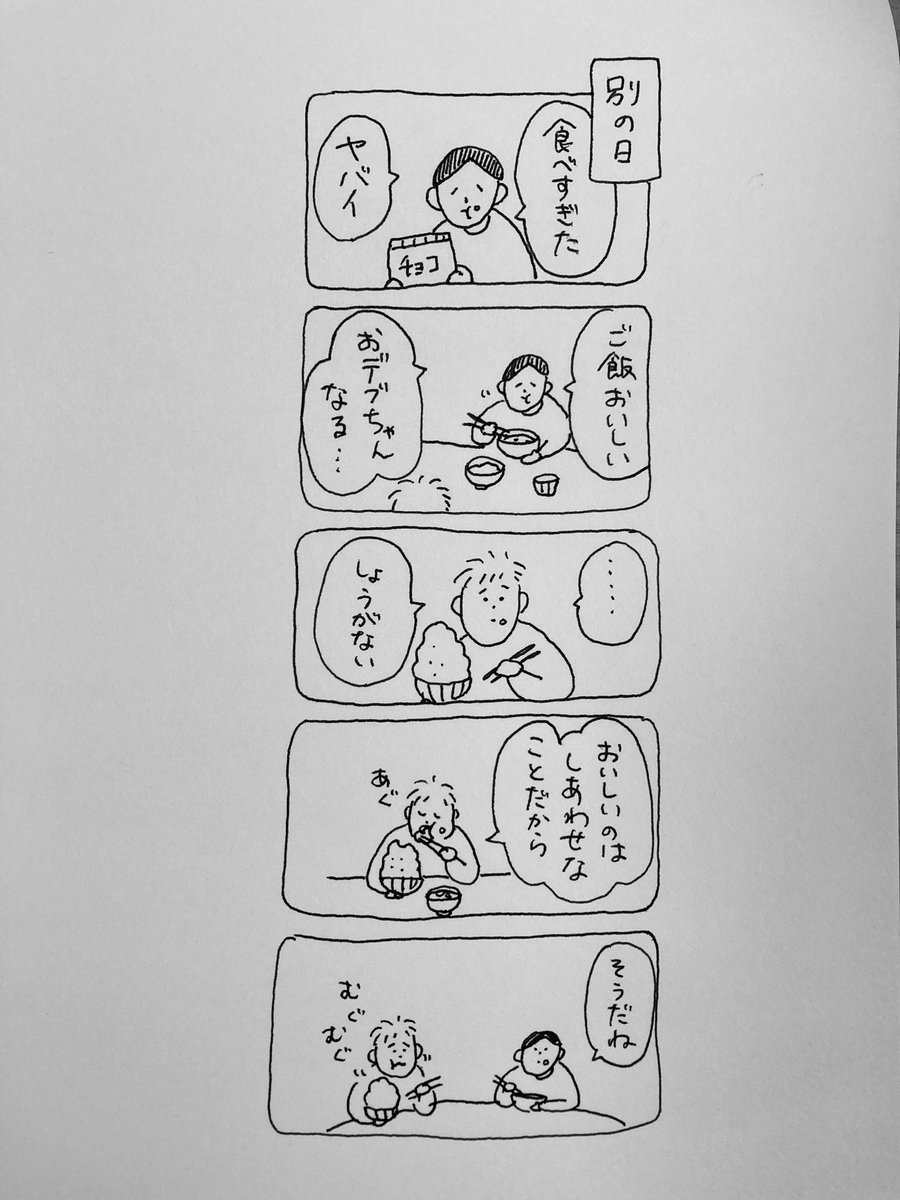 別の日
食べすぎた
ヤバイ
チョコ
ご飯おいしい
おデブちゃん
なる…
……
しょうがない
おいしいのは
しあわせな
ことだから
あぐ
そうだね
むぐ
むぐ